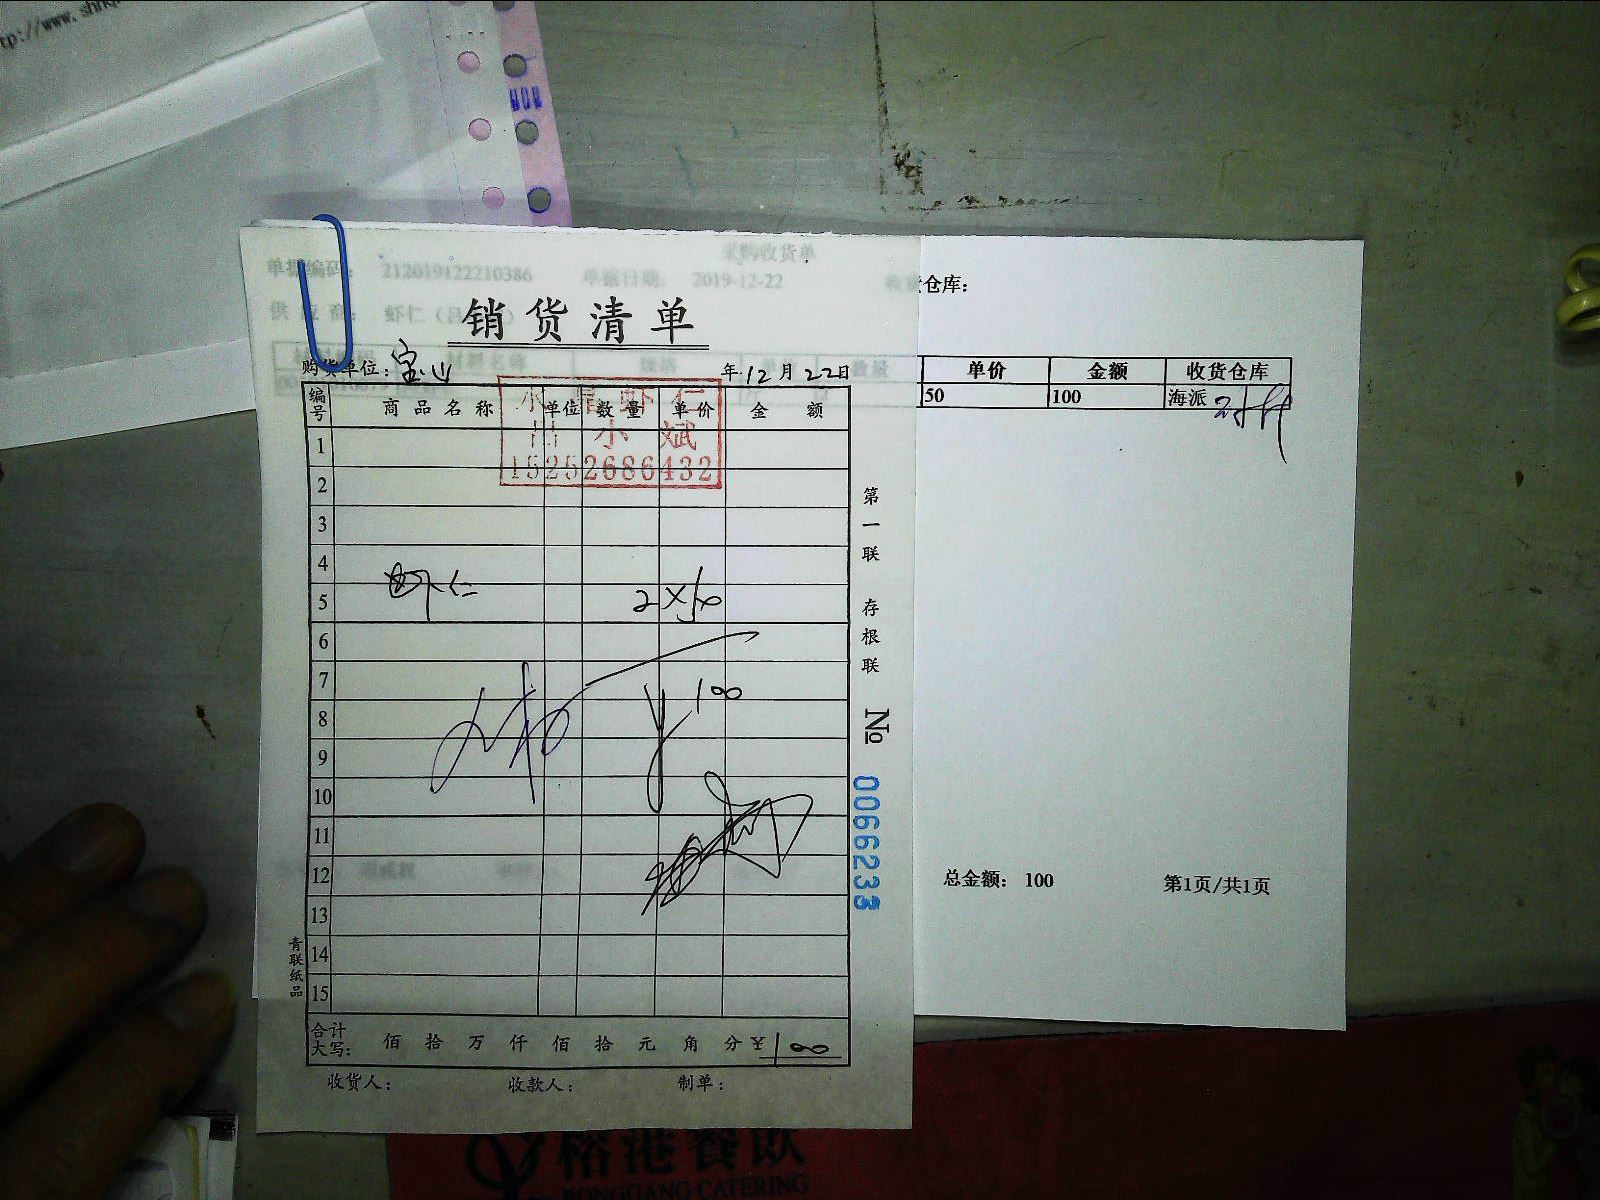 采购收货单
单据编码： 212019122210386 单据日期： 2019-12-22 仓库：
供应商： 虾仁
销货清单
购货单位：宝山 年12月22日
单价 金额 收货仓库
50 100 海派
编号 商品名称 单位 数量 单价 金额
小斌
15252686432
1
2
3
4
虾仁 2×50
5
6
7
¥100
8
9
10
11
12
13
14
15
合计大写： 佰 拾 万 仟 佰 拾 元 角 分 ¥100
收货人： 收款人： 制单：
第一联 存根联 No 0066233
青联纸品
总金额： 100 第1页/共1页
榕港餐饮
RONGGANG CATERING